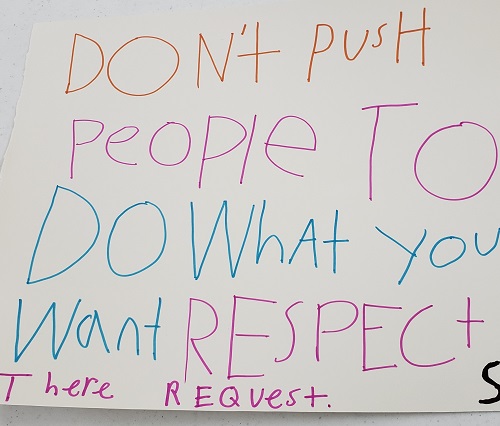 DON't PUSH
PEOPlE TO
DO WhAt YOU
Want RESPECt
There REQUest.
S